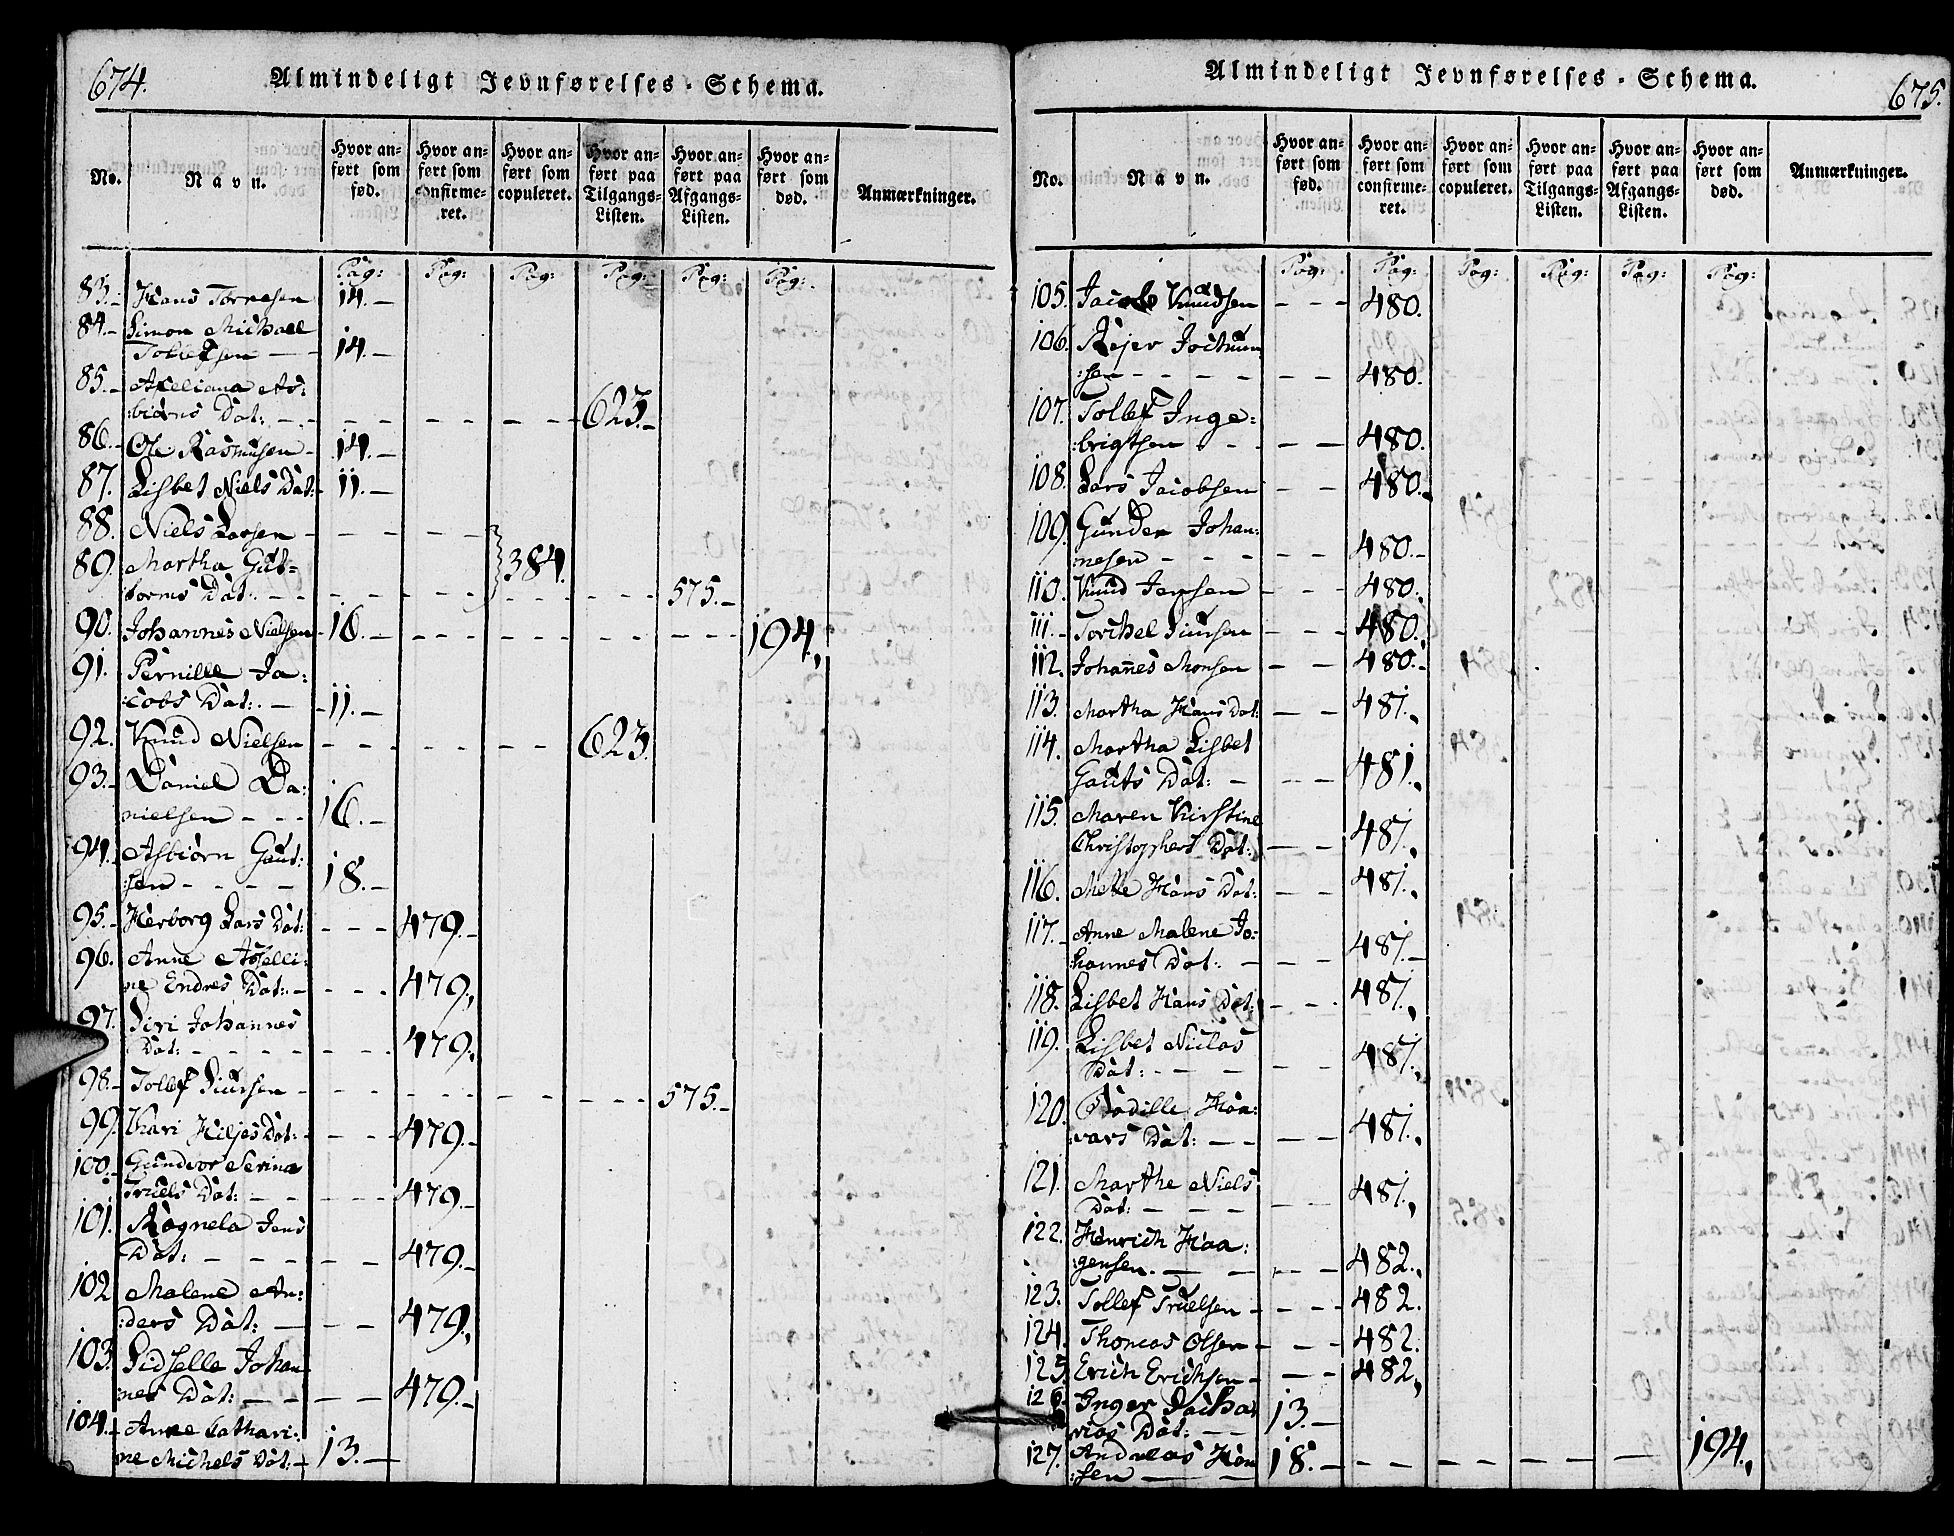 674.
Almindeligt Jevnførelses-Schema.
No.
Navn.
Hvor anført som fød.
Hvor anført som confirmeret.
Hvor anført som copuleret.
Hvor anført paa Tilgangs-Listen.
Hvor anført paa Afgangs-Listen.
Hvor anført som død.
Anmærkninger.
Pag: Pag: Pag: Pag: Pag: Pag:
83.- Hans Tørresen 14.-
84.- Simon Michael
Tollefsen - - 14.-
85.- Axeliana As:
:biørns Dat: - - - - - - 623.-
86.- Ole Rasmusen - 14.-
87. Lisbet Niels Dat: 11.-
88. Niels Larsen - - - - -
89. Martha Gut-
torms Dat: - - - - - 384. - - - - 575.-
90. Johannes Nielsen - 16.- - - - - - - - - - 194.,
91. Pernille Ja:
:cobs Dat:. - - 11.-
92. Knud Nielsen - - - - - - - 623.
93.- Daniel Da:
nielsen - - - 16.-
94. Asbiørn Gaut:
:sen - - - - 18.-
95.- Herborg Lars Dat: - - - 479.-
96. Anne Asselli:
ne Endres Dat:- - - - 479.,
97. Siri Johannes
Dat: - - - - - - - 479.
98.- Tollef Siursen - - - - - - - - - 575.-
99. Kari Hiljes Dat: - - - 479.-
100.- Gundvor Serina
Truels Dat: - - - - - 479.-
101. Ragnela Jens
Dat: - - - - - - 479.-
102 Malene An:
:ders Dat: - - - 479.,
103. Sidselle Johan-
nes Dat: - - - - - 479.-
104.- Anne Cathari:
ne Michels Dat: - 13.-
Almindeligt Jevnførelses-Schema.
675.
No.
Navn.
Hvor anført som fød.
Hvor anført som confirmeret.
Hvor anført som copuleret.
Hvor anført paa Tilgangs-Listen.
Hvor anført paa Afgangs-Listen.
Hvor anført som død.
Anmærkninger.
Pag: Pag: Pag: Pag: Pag: Pag:
105. Jacob Knudsen - - - 480.
106. Rejer Jochum
:sen - - - - - - 480.
107. Tollef Inge:
:brigtsen - - - - 480.
108. Lars Jacobsen - - - 480.
109. Gunder Johan:
:nesen - - - - - 480.-
110. Knud Jensen - - - 480.
111.- Torchel Siursen - - - 480.
112. Johannes Monsen - - 480.-
113. Martha Hans Dat: - - 481.,
114. Martha Lisbet
Gauts Dat: - - - 481.,
115. Maren Kirstine
Christophers Dat: - - 481.,
116. Mette Hans Dat: - - 481.,
117.- Anne Malene Jo:
:hannes Dat: - - - 481.-
118. Lisbet Hans Dat: - - - 481.,
119. Lisbet Niclas
Dat: - - - - - 481.,
120. Bodille Haa:
:vars Dat: - - - - 481.,
121. Marthe Niels
Dat: - - - - - 481.,
122. Henrich Haa:
:gensen. - - - - 482.,
123. Tollef Truelsen - - - 482.
124. Thomas Olsen - - - 482.
125. Erich Erichsen - - - 482,
126. Inger Sacha
rias Dat: - - 13.-
127. Andreas Han
:sen - - - 18.- - - - - - - - 194.,